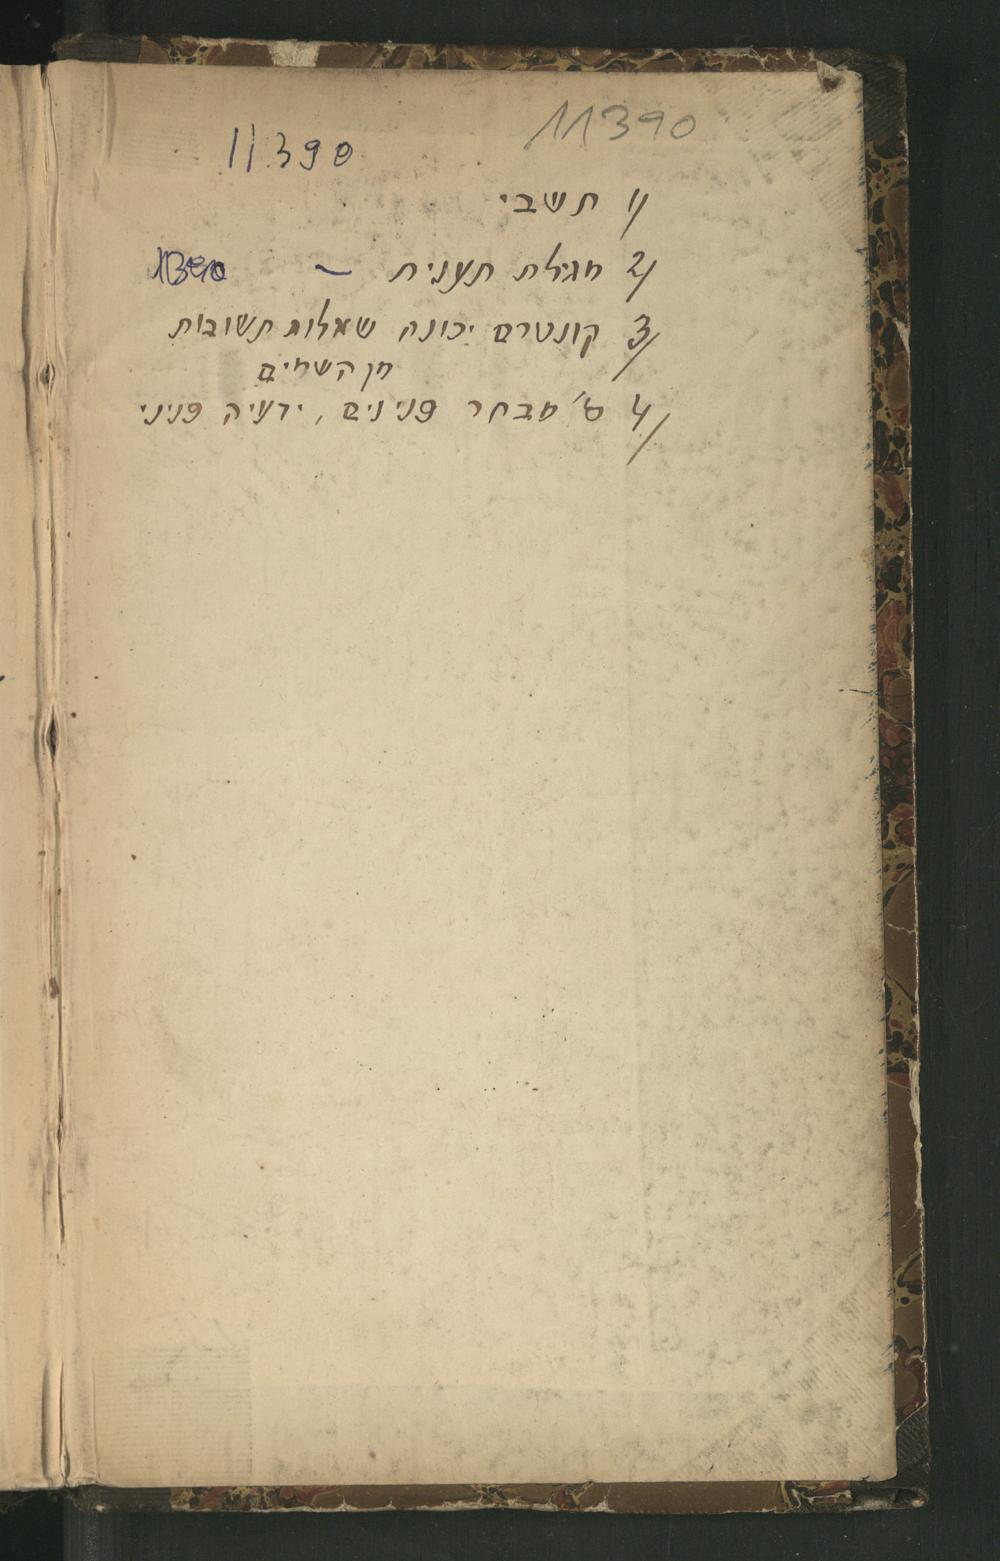 11390
11390
1) תשבי
2) מגילת תענית ~
3) קונטרס יכונה שאלות תשובות
מן השמים
4) ס' מבחר פנינים, ידעיה פניני